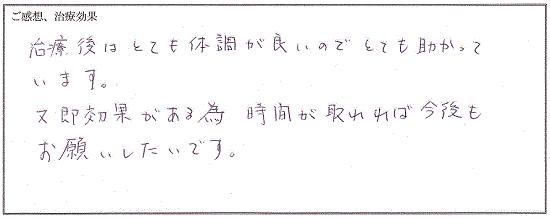 ご感想、治療効果
治療後はとても体調が良いのでとても助かって
います。
又即効果がある為 時間が取れれば今後も
お願いしたいです。